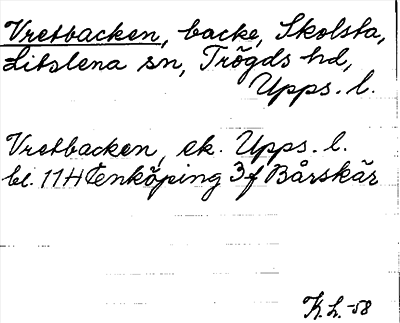 Vretbacken, backe, Skolsta,
Litslena sn, Trögds hd,
Upps. l.
Vretbacken, ek. Upps. l.
bl. 11H Enköping 3f Bårskär
K. L. -58